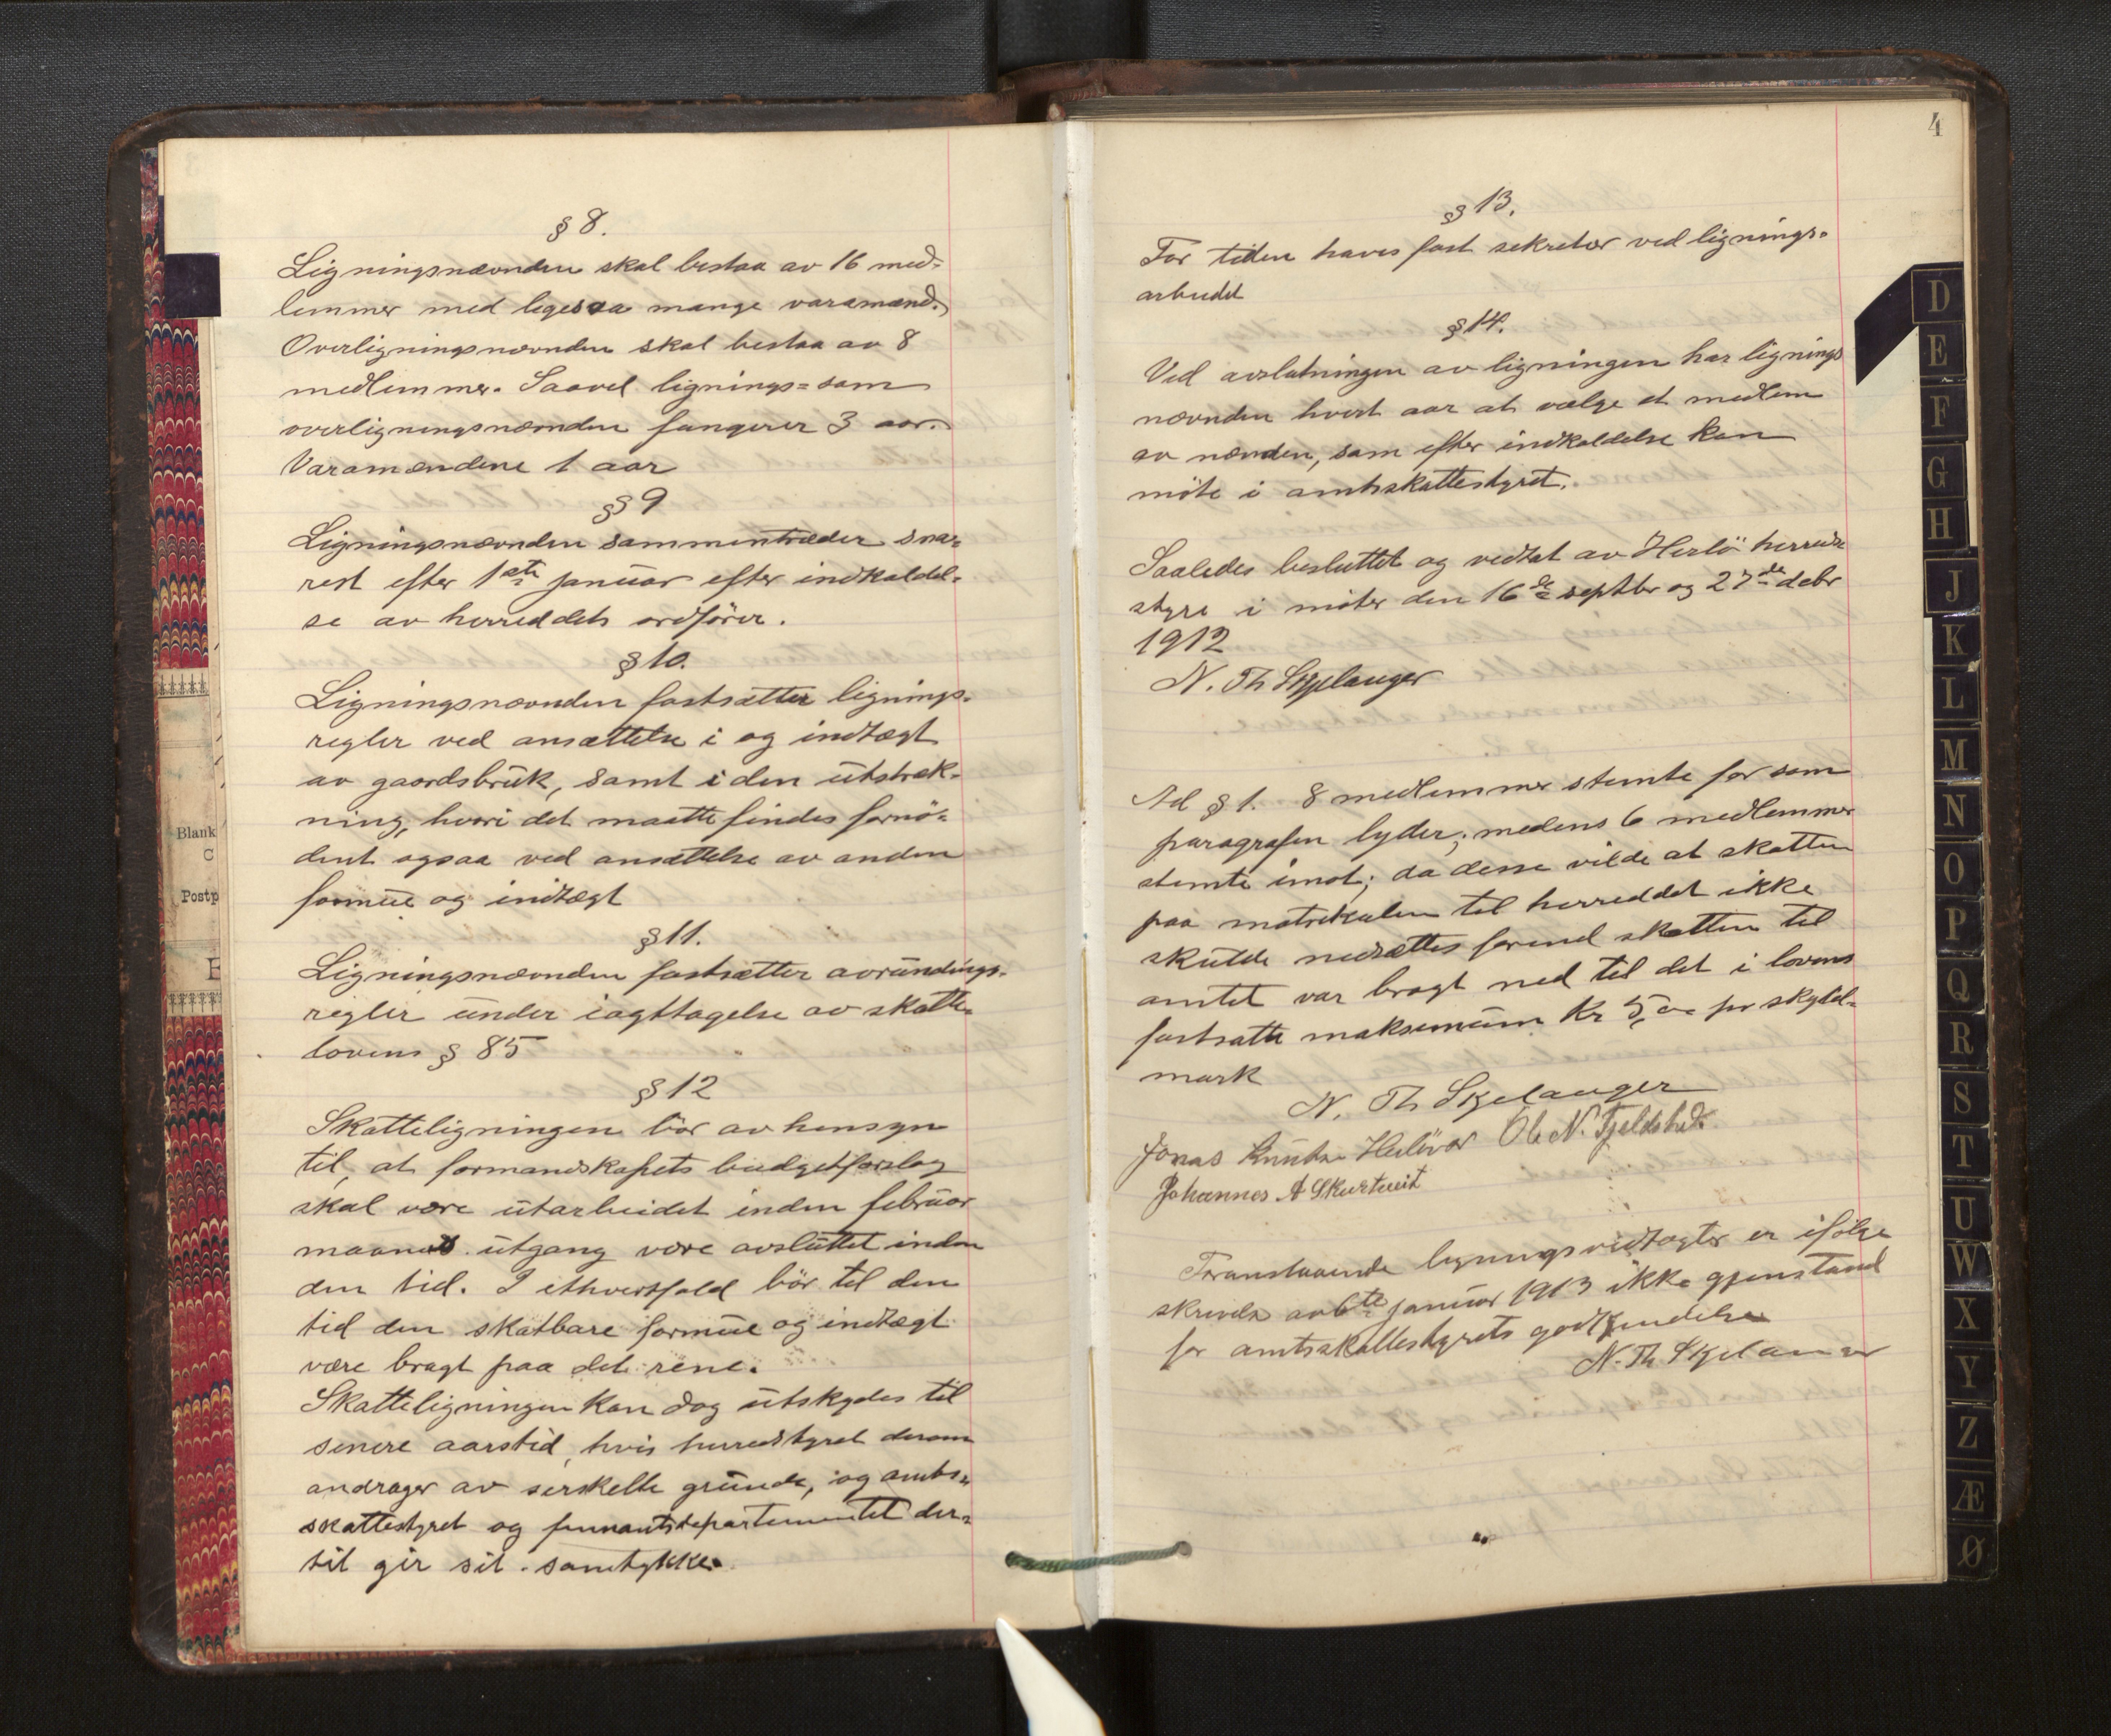 § 8.
Ligningsnævnden skal bestaa av 16 med-
lemmer med ligesaa mange varamænd.
Overligningsnævnden skal bestaa av 8
medlemmer. Saavel lignings= som
overligningsnævnden fungerer 3 aar.
Varamændene 1 aar
§ 9
Ligningsnævnden sammentræder sna-
rest efter 1ste januar efter indkaldel-
se av herreddets ordfører.
§ 10.
Ligningsnævnden fastsætter lignings-
regler ved ansættelse i og indtægt
av gaardsbruk, samt i den utstræk-
ning, hvori det maatte findes fornö-
dent ogsaa ved ansættelse av anden
formue og indtægt
§ 11.
Ligningsnævnden fastsætter avrundings-
regler under iagttagelse av skatte-
lovens § 85
§ 12
Skatteligningen bör av hensyn
til, at formandskapets budgetforslag
skal være utarbeidet inden februar
maaneds utgang være avsluttet inden
den tid. I ethvertfald bör til den
tid den skatbare formue og indtægt
være bragt paa det rene.
Skatteligningen kan dog utskydes til
senere aarstid, hvis herredstyret derom
andrager av serskelte grunde, og amts-
skattestyret og finnantsdepartementet der-
til gir sit samtykke.
4
§ 13.
For tiden haves fast sekretær ved lignings-
arbeidet
§ 14.
Ved avslutningen av ligningen har lignings
nævnden hvert aar at vælge et medlem
av nævnden, som efter indkaldelse kan
möte i amtsskattestyret.
Saaledes besluttet og vedtat av Herlö herreds
styre i möter den 16de septbr og 27de debr
1912
N. Th Skjelanger
Ad § 1. 8 medlemmer stemte for som
paragrafen lyder; medens 6 medlemmer
stemte imot; da desse vilde at skatten
paa matrikulen til herreddet ikke
skulde nedsættes forend skatten til
amtet var bragt ned til det i lovens
fastsatte maksimum Kr 5,00 pr skyld-
mark
N. Th Skjelanger
Jonas Knutsen Herlövær Ole N. Fjeldstad
Johannes A Skurtveit
Foranstaaende ligningsvedtægter er ifölge
skrivelse av 6te januar 1913 ikke gjenstand
for amtsskattestyrets godkjendelse
N. Th Skjelanger
D
E
F
G
H
J
K
L
M
N
O
P
Q
R
S
T
U
W
X
Y
Z
Æ
Ø
Blank
Postp